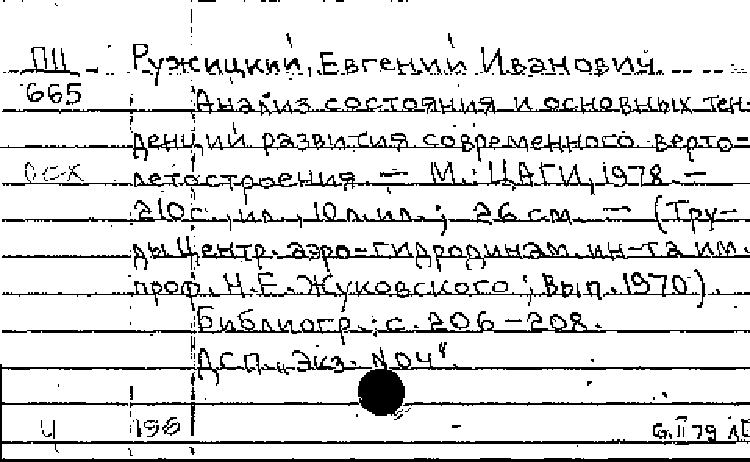 П11 Ружицкий, Евгений Иванович
665 Анализ состояния и основных тен-
денций развития современного верто-
осх летостроения. – М.: ЦАГИ, 1978. –
210 с., ил., 10 л. ил.; 26 см. – (Тру-
ды Центр. аэро-гидродинам. ин-та им.
проф. Н. Е. Жуковского; Вып. 1970).
Библиогр.: с. 206–208.
ДСП. „Экз. N 04“.
4 196 6.II 79